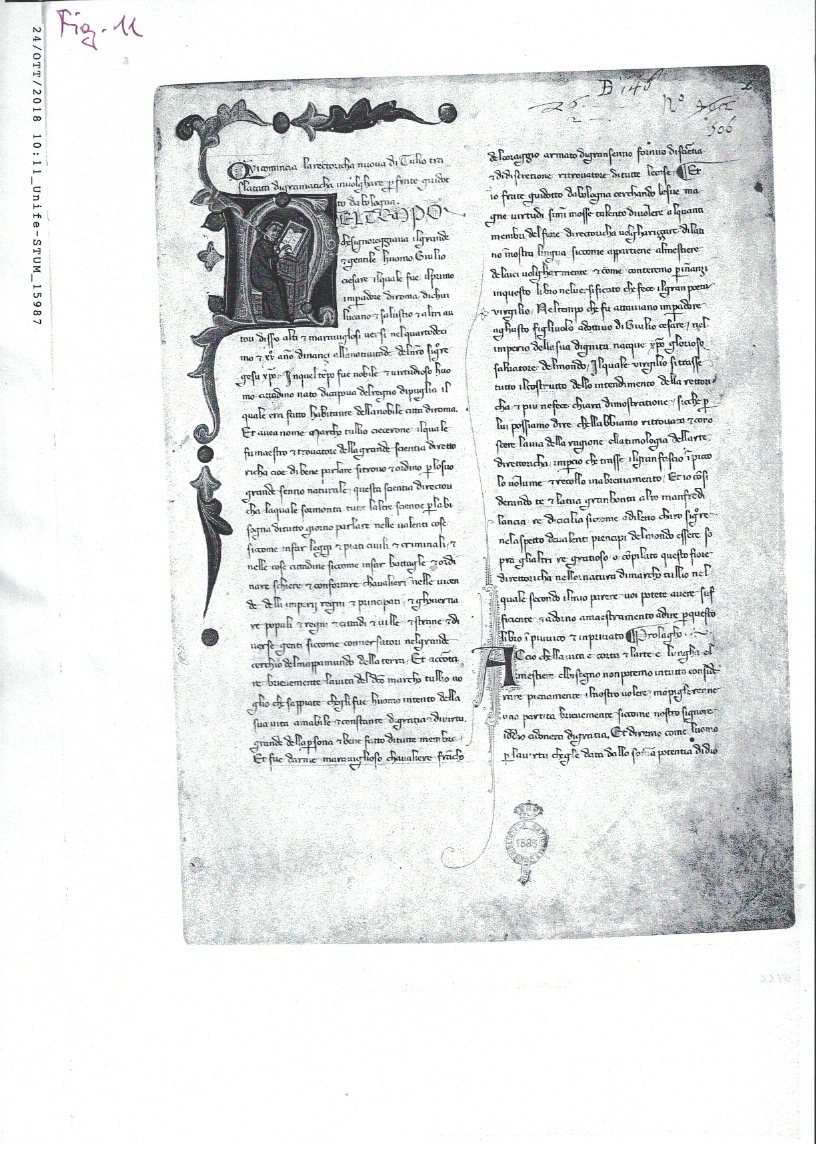 Fig. 11
24/OTT/2018 10:11_Unife-STUM_15987
B 146
nº
506
Qui comincia la rectoricha nuova di Tulio tra
slatata di gramaticha in volghare p frate guidot
to da bologna.
NEL TEMPO
che signoreggiava il grande
⁊ gentile huomo Giulio
cesare il quale fue il primo
impadore di roma. di chui
lucano ⁊ salustro ⁊ altri au
tori disso alti ⁊ maravigliosi versi nel quarto deci
mo ⁊ xv año dinanzi alla nativitade del nr̃o sigr̃e
gesu xp̃o. In quel tẽpo fue nobile ⁊ virtudioso huo
mo cittadino nato di capova del regno di puglia il
quale era fatto habitante della nobile citta di roma.
Et avea nome Marcho tullio cicerone il quale
fu maestro ⁊ trovatore della grande scientia di retto
richa cioe di bene parlare si trovo ⁊ ordino p lo suo
grande senno naturale. questa scientia di rectori
cha la quale sormonta tutte l altre scientie p la bi
sogna di tutto giorno parlare nelle valenti cose
siccome in far leggi ⁊ piati civili ⁊ criminali. ⁊
nelle cose cittadine siccome in far battaglie ⁊ ordi
nare schiere ⁊ confortare chavalieri nelle vicen
de delli imperii regni ⁊ principati. ⁊ ghoverna
re populi ⁊ regni ⁊ cittadi ⁊ ville ⁊ strane ⁊ di
verse genti siccome conversatori nel grande
cerchio del mappamundo della terra. Et accõta
re brievemente la vita del dc̃o marcho tullio vo
glio che sappiate ch egli fue huomo intento della
sua vita amabile ⁊ constante di gratia ⁊ di virtu.
grande della psona ⁊ bene fatto di tutte membre
Et fue d arme maraviglioso chavaliere francho
del coraggio armato di gran senno fornito di sciẽtia
⁊ di discretione ritrovatore di tutte le cose ¶ Et
io frate guidotto da bologna cerchando le sue ma
gne virtudi simi mosse talento di volere alquanti
membri del fiore di rectoricha volgharizzare di lati
no in nostra lingua siccome apartiene al mestiere
de laici volgharmente ⁊ come conteremo p innanzi
in questo libro nel versificato che fece il gran poeta
virgilio. Nel tempo che fu attaviano impadore
aghusto figliuolo adottivo di Giulio cesare. nel
imperio della sua dignita nacque xp̃o glorioso
salvatore del mondo. Il quale virgilio si trasse
tutto il costrutto dello intendimento della rettori
cha ⁊ piu ne fece chiara dimostratione. sicche p
lui possiamo dire che l abbiamo ritrovata ⁊ cono
scere la via della ragione ella timologia dell arte.
di rettoricha. impcio che trasse il gran fascio ĩ picco
lo volume ⁊ recollo in abreviamento. Et io cõsi
derando te ⁊ la tua gran bonta alto manfredi
lancia re di cicilia siccome a diletto charo sigr̃e
nel aspetto de valenti principi del mondo essere so
pra gli altri re gratioso. o cõpilato questo fiore
di rettoricha nell ornatura di marcho tullio nel
quale secondo il mio parere voi potete avere suf
ficiente ⁊ adorno amaestramento a dire p questo
libro ĩ pivuico ⁊ in privato ¶ Prolagho.
ACcio che lla vita e corta ⁊ l arte e lungha el
mestiere el bisogno non potremo in tutto conside
rare pienamente il nostro volere. ma piglierenne
una partita brievemente siccome nostro signore
iddio ci donera di gratia. Et diremo come l uomo
p la vertu che gl e data dallo sovrana potentia di dio
BIBLIOTECA NAZIONALE
1885